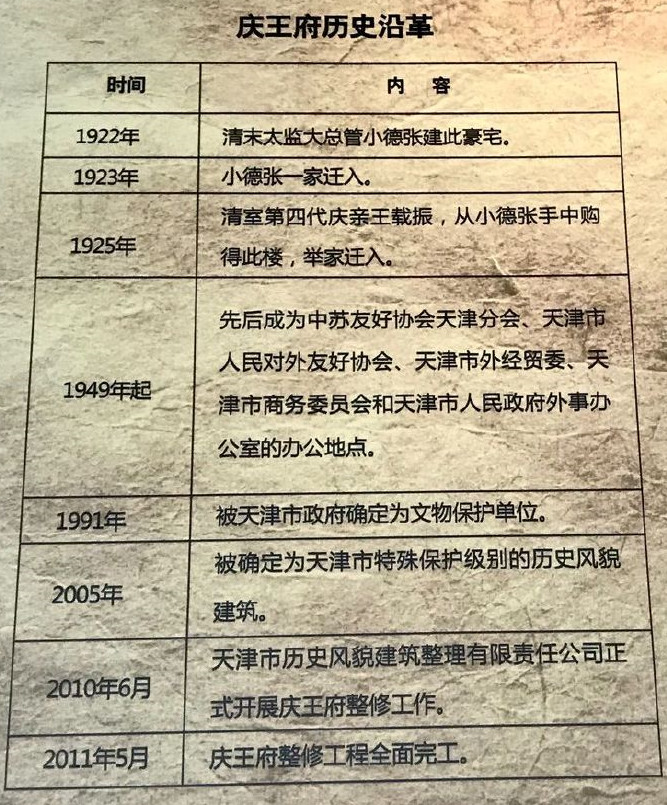 庆王府历史沿革
时间 内 容
1922年 清末太监大总管小德张建此豪宅。
1923年 小德张一家迁入。
1925年 清室第四代庆亲王载振，从小德张手中购
得此楼，举家迁入。
1949年起 先后成为中苏友好协会天津分会、天津市
人民对外友好协会、天津市外经贸委、天
津市商务委员会和天津市人民政府外事办
公室的办公地点。
1991年 被天津市政府确定为文物保护单位。
2005年 被确定为天津市特殊保护级别的历史风貌
建筑。
2010年6月 天津市历史风貌建筑整理有限责任公司正
式开展庆王府整修工作。
2011年5月 庆王府整修工程全面完工。